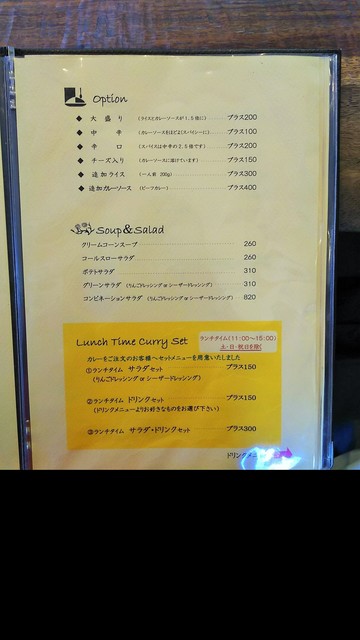 Option
◆ 大盛り (ライスとカレーソースが1.5倍に) プラス200
◆ 中辛 (カレーソースをほどよくスパイシーに) プラス100
◆ 辛口 (スパイスは中辛の2.5倍です) プラス200
◆ チーズ入り (カレーソースに溶けています) プラス150
◆ 追加ライス (一人前 200g) プラス300
◆ 追加カレーソース (ビーフカレー) プラス400
Soup&Salad
クリームコーンスープ 260
コールスローサラダ 260
ポテトサラダ 310
グリーンサラダ (りんごドレッシング or シーザードレッシング) 310
コンビネーションサラダ (りんごドレッシング or シーザードレッシング) 820
Lunch Time Curry Set ランチタイム(11:00~15:00)
土・日・祝日を除く
カレーをご注文のお客様へセットメニューを用意いたしました
①ランチタイム サラダセット プラス150
(りんごドレッシング or シーザードレッシング)
②ランチタイム ドリンクセット プラス150
(ドリンクメニューよりお好きなものをお選び下さい)
③ランチタイム サラダ・ドリンクセット プラス300
ドリンクメニ